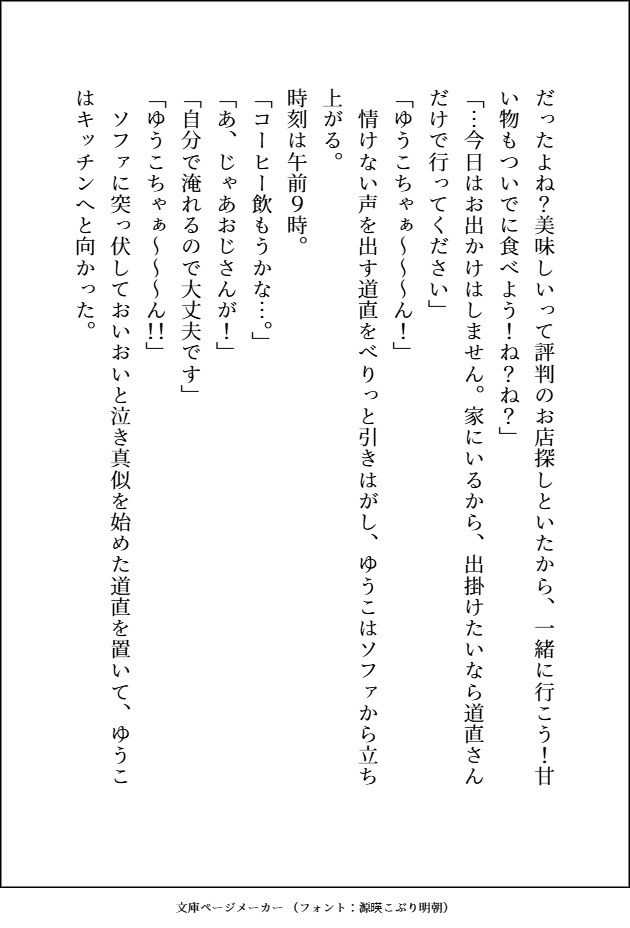 だったよね？美味しいって評判のお店探しといたから、一緒に行こう！甘
い物もついでに食べよう！ね？ね？」
「…今日はお出かけはしません。家にいるから、出掛けたいなら道直さん
だけで行ってください」
「ゆうこちゃぁ～～～ん！」
　情けない声を出す道直をべりっと引きはがし、ゆうこはソファから立ち
上がる。
時刻は午前９時。
「コーヒー飲もうかな…。」
「あ、じゃあおじさんが！」
「自分で淹れるので大丈夫です」
「ゆうこちゃぁ～～～ん!!」
　ソファに突っ伏しておいおいと泣き真似を始めた道直を置いて、ゆうこ
はキッチンへと向かった。
文庫ページメーカー（フォント：源暎こぶり明朝）